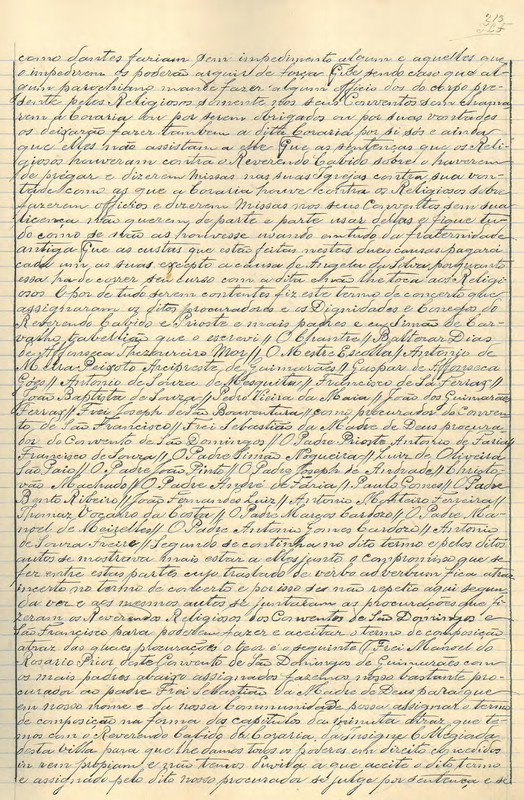 313
como dantes faziam sem impedimento algum e aquelles que
o impedirem os poderão arguir de força Que sendo caso que al-
gum parochiano mande fazer algum officio dos do corpo pre-
sente pelos Religiosos somente nos seus Conventos sem chama-
rem a Coraria ou por serem obrigados ou por suas vontades
os deixarão fazer tambem a dita Coraria por si sós e ainda
que elles não assistam a elle Que as sentenças que os Reli-
giosos houveram contra o Reverendo Cabido sobre o haverem
de prégar e dizerem missas nas suas Igrejas contra sua von-
tade como as que a Coraria houve contra os Religiosos sobre
fazerem officios e dizerem Missas nos seus Conventos sem sua
licença não querem de parte e parte usar dellas e fique tu-
do como se não as houvesse usando em tudo da fraternidade
antiga Que as custas que estão feitas nestas duas causas pagará
cada um as suas excepto a causa de Angela da Silva porquanto
essa ha de correr seu curso com a dita e não lhe toca aos Religi-
osos E por de tudo serem contentes fiz este termo de concerto que
assignaram os ditos procuradores e os Dignidades e Conegos do
Reverendo Cabido e Prioste e mais padres e eu Simão de Car-
valho tabellião que o escrevi // O Chantre // Balthazar Dias
de Affonseca Thezoureiro Mor // O Mestre Escolla // Antonio de
Meira Peixoto Arcipreste de Guimarães // Gaspar de Affonseca
Goes // Antonio de Souza de Mesquita // Francisco de Sá Ferraz //
João Baptista de Souza // Pedro Vieira da Maia // João dos Guimarães
Ferraz // Frei Joseph de São Boaventura // como procurador do Conven-
to de São Francisco // Frei Sebastião da Madre de Deus procura-
dor do Convento de São Domingos // O Padre Prioste Antonio de Faria //
Francisco de Souza // O Padre Simão Nogueira // Luiz de Oliveira
São Paio // O Padre João Pinto // O Padre Joseph de Andrade // Christo-
vão Machado // O Padre André de Faria // Paulo Gomes // O Padre
Bento Ribeiro // João Fernandes Luiz // Antonio Monteiro Ferreira //
Thomaz Voçarro da Costa // O Padre Marcos Cardozo // O Padre Ma-
noel de Meizelles // O Padre Antonio Gomes Cardozo // Antonio
de Souza Freire // Segundo se continha no dito termo e pelos ditos
autos se mostrava mais estar a elles junto o compromisso que se
fez entre estas partes cujo traslado de verbo ad verbum fica atraz
incerto no termo de concerto e por isso se não repetio aqui segun-
da vez e aos mesmos autos se juntaram as procurações que fi-
zeram os Reverendos Religiosos dos Conventos de São Domingos e
São Francisco para poderem fazer e acceitar o termo de composição
atraz das quaes procurações o teor é o seguinte // Frei Manoel do
Rosario Prior deste Convento de São Domingos de Guimarães com
os mais padres abaixo assignados fazemos nosso bastante pro-
curador ao padre Frei Sebastião da Madre de Deus para que
em nosso nome e da nossa Communidade possa assignar o termo
de composição na forma dos capitulos da minuta atraz que te-
mos com o Reverendo Cabido da Coraria da insigne Collegiada
desta villa para que lhe damos todos os poderes em direito concedidos
in rem propiam e não temos duvida a que aceite o dito termo
e assignado pelo dito nosso procurador se julge por sentença e se